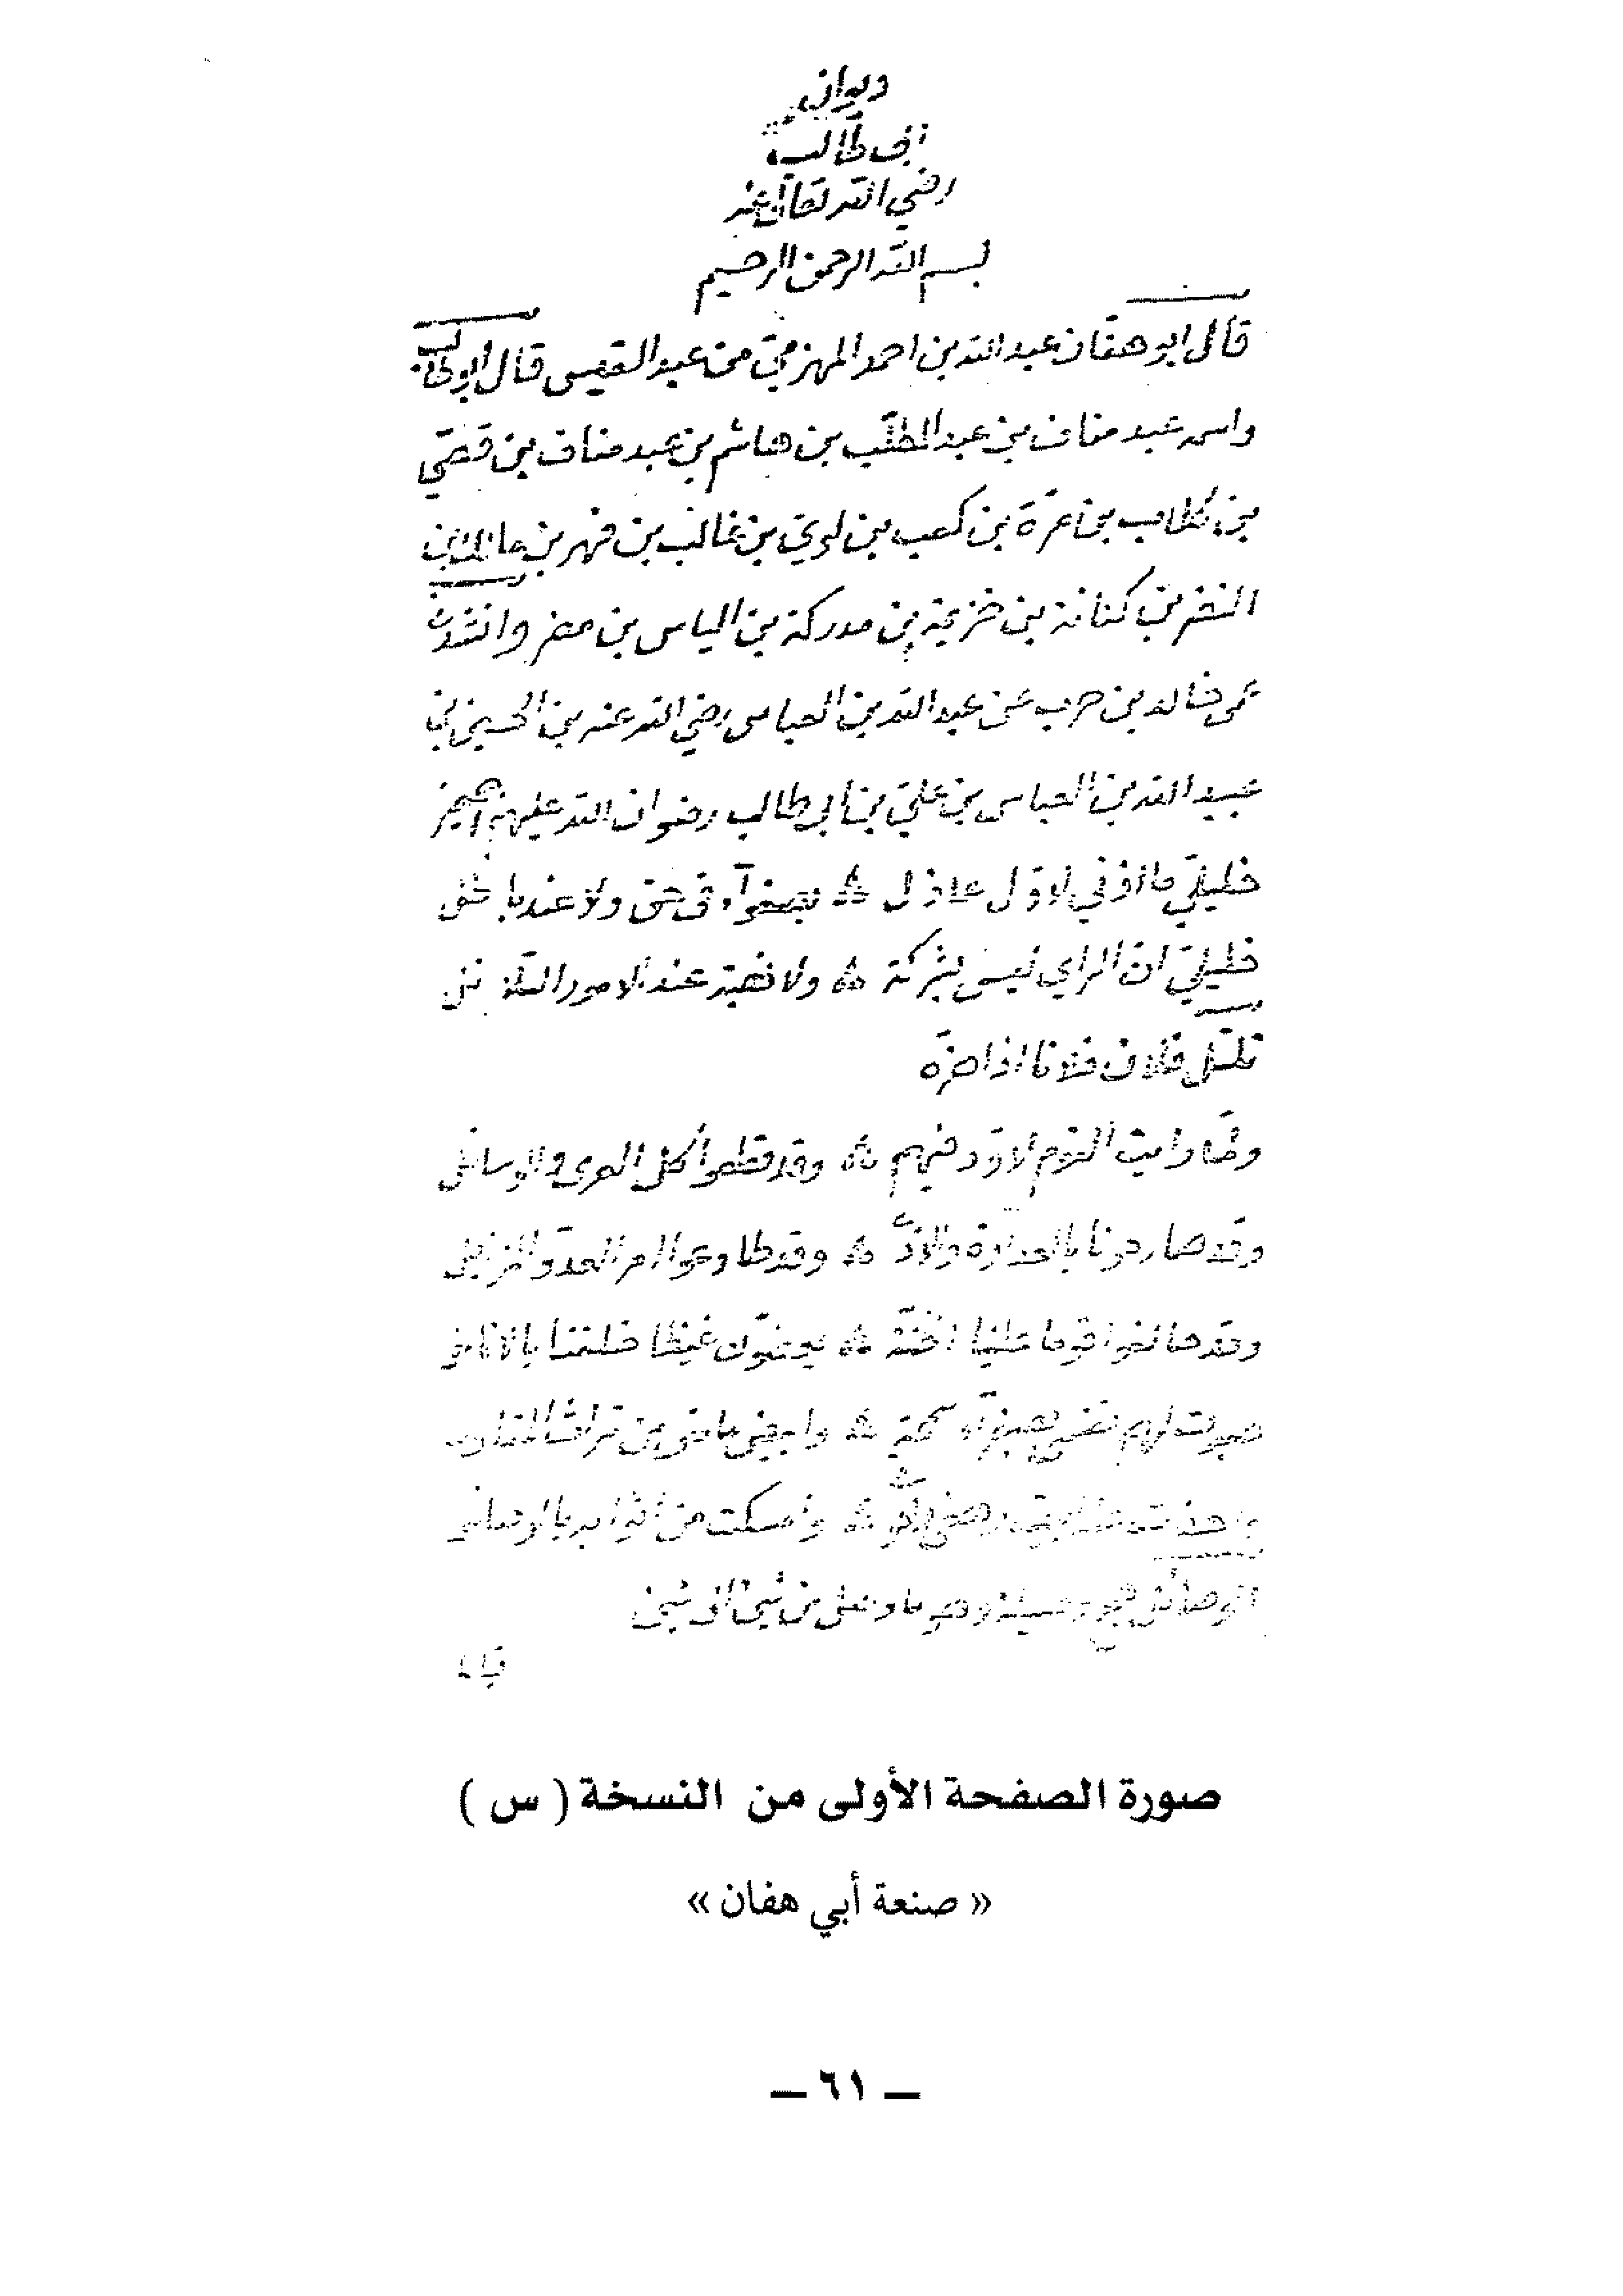 ديوان
ابى طالب
رضي الله تعالى عنه
بسم الله الرحمن الرحيم
قال ابو هفان عبد الله بن احمد المهزمي من عبد القيس قال أبو طالب
واسمه عبد مناف بن عبد المطلب بن هاشم بن عبد مناف بن قصي
بن كلاب بن مرة بن كعب بن لوي بن غالب بن فهر بن مالك بن
النضر بن كنانة بن خزيمة بن مدركة بن الياس بن مضر وانشد
عمى خالد بن حرب عن عبد الله بن العباس رضي الله عنه بن الحسين بن
عبيد الله بن العباس بن علي بن ابى طالب رضوان الله عليهم اجمعين
خليليّ ما اذني لاوّل عاذل ه بصغوآء فى حق ولا عند باطل
خليليّ ان الراي ليس بشركة ه ولا نهية عند الامور التلاتل
تلتل فلان فلانا اذا
ولما رايت القوم لا ودّ فيهم ه وقد قطعوا كل العرى والوسائل
وقد صارحونا بالعداوة والاذى ه وقد طاوعوا امر العدو المزايل
وقد حالفوا قوما علينا اظنة ه يعضون غيظا خلفنا بالانامل
صبرت لهم نفسي بصفرآء سمحة ه وابيض ماض من تراث المقاول
واحضرت عند البيت رهطي ه وامسكت من اثوابه بالوصائل
الوصائل وصيلة وهو ما وصل من شئ الى شئ
قياما
صورة الصفحة الأولى من النسخة ( س )
« صنعة أبي هفان »
— ٦١ —